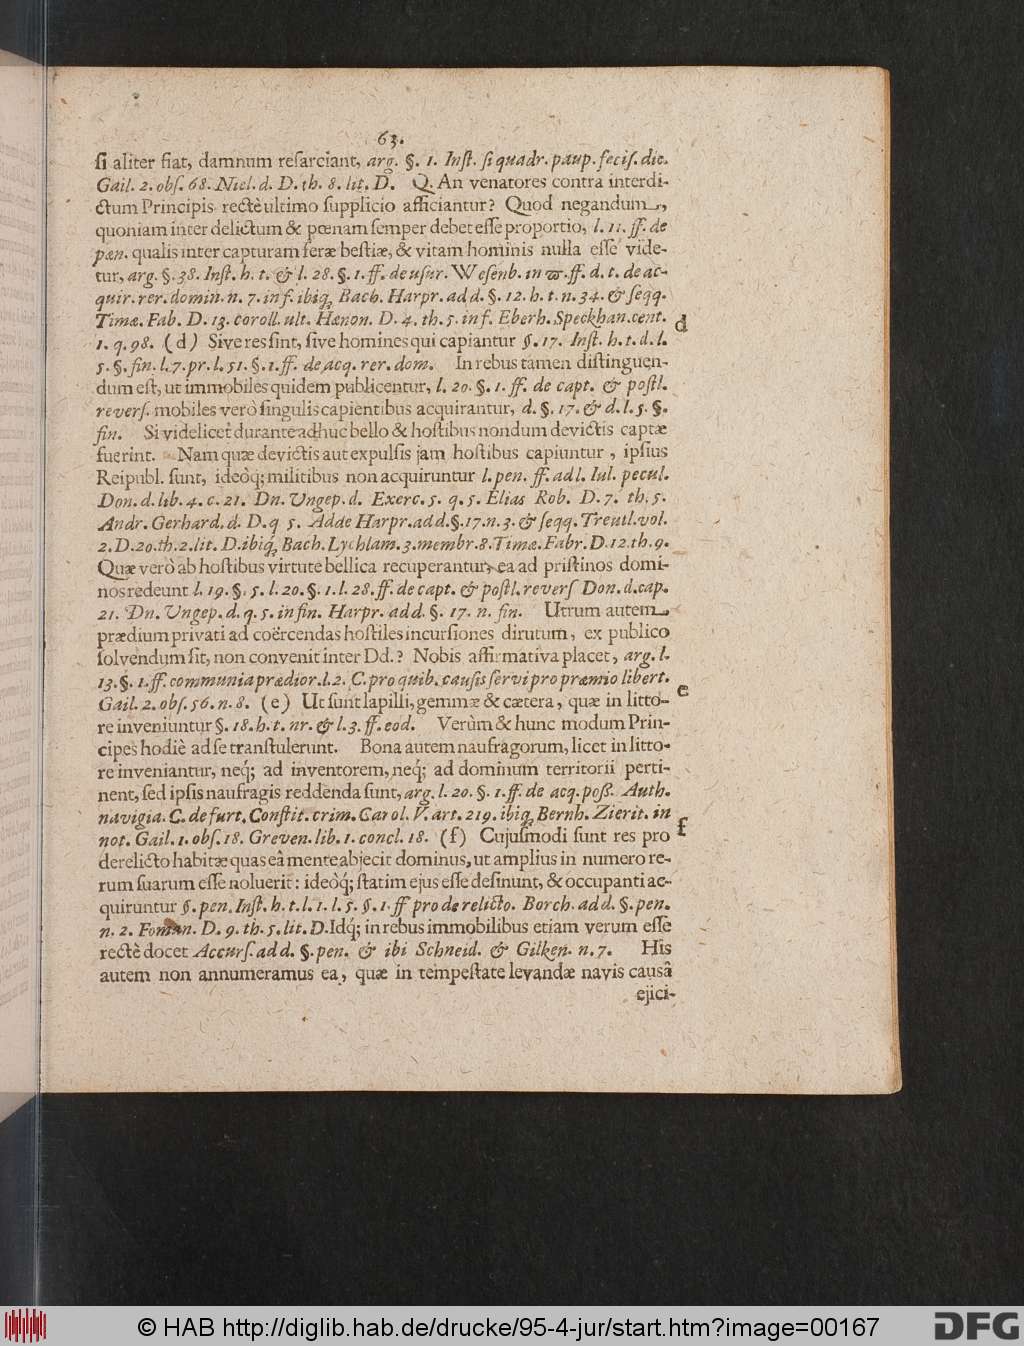 63.
ſi aliter fiat, damnum reſarciant, arg. §. 1. Inſt. ſi quadr. paup. feciſ. dic.
Gail. 2. obſ. 68. Niel. d. D. th. 8. lit. D. Q. An venatores contra interdi-
ctum Principis rectè ultimo ſupplicio afficiantur? Quod negandum,
quoniam inter delictum & pœnam ſemper debet eſſe proportio, l. 11. ff. de
pœn. qualis inter capturam feræ beſtiæ, & vitam hominis nulla eſſe vide-
tur, arg. §. 38. Inſt. h. t. & l. 28. §. 1. ff. de uſur. Weſenb. in ϖ. ff. d. t. de ac-
quir. rer. domin. n. 7. inf. ibiq; Bach. Harpr. ad d. §. 12. h. t. n. 34. & ſeqq.
Timæ. Fab. D. 13. coroll. ult. Hænon. D. 4. th. 5. inf. Eberh. Speckhan. cent. d
1. q. 98. (d) Sive res ſint, ſive homines qui capiantur §. 17. Inſt. h. t. d. l.
5. §. fin. l. 7. pr. l. 51. §. 1. ff. de acq. rer. dom. In rebus tamen diſtinguen-
dum eſt, ut immobiles quidem publicentur, l. 20. §. 1. ff. de capt. & poſtl.
reverſ. mobiles verò ſingulis capientibus acquirantur, d. §. 17. & d. l. 5. §.
fin. Si videlicet durante adhuc bello & hoſtibus nondum devictis captæ
fuerint. Nam quæ devictis aut expulſis jam hoſtibus capiuntur, ipſius
Reipubl. ſunt, ideòq; militibus non acquiruntur l. pen. ff. ad l. Iul. pecul.
Don. d. lib. 4. c. 21. Dn. Ungep. d. Exerc. 5. q. 5. Elias Rob. D. 7. th. 5.
Andr. Gerhard. d. D. q 5. Adde Harpr. ad d. §. 17. n. 3. & ſeqq. Treutl. vol.
2. D. 20. th. 2. lit. D. ibiq; Bach. Lychlam. 3. membr. 8. Timæ. Fabr. D. 12. th. 9.
Quæ verò ab hoſtibus virtute bellica recuperantur, ea ad priſtinos domi-
nos redeunt l. 19. §. 5. l. 20. §. 1. l. 28. ff. de capt. & poſtl. reverſ Don. d. cap.
21. Dn. Ungep. d. q. 5. in fin. Harpr. ad d. §. 17. n. fin. Utrum autem
prædium privati ad coërcendas hoſtiles incurſiones dirutum, ex publico
ſolvendum ſit, non convenit inter Dd.? Nobis affirmativa placet, arg. l.
13. §. 1. ff. communia prædior. l. 2. C. pro quib. cauſis ſervi pro præmio libert.
Gail. 2. obſ. 56. n. 8. (e) Ut ſunt lapilli, gemmæ & cætera, quæ in litto- e
re inveniuntur §. 18. h. t. nr. & l. 3. ff. eod. Verùm & hunc modum Prin-
cipes hodiè ad ſe tranſtulerunt. Bona autem naufragorum, licet in litto-
re inveniantur, neq; ad inventorem, neq; ad dominum territorii perti-
nent, ſed ipſis naufragis reddenda ſunt, arg. l. 20. §. 1. ff. de acq. poſſ. Auth.
navigia. C. de furt. Conſtit. crim. Carol. V. art. 219. ibiq; Bernh. Zierit. in
not. Gail. 1. obſ. 18. Greven. lib. 1. concl. 18. (f) Cujuſmodi ſunt res pro f
derelicto habitæ quas eâ mente abjecit dominus, ut amplius in numero re-
rum ſuarum eſſe noluerit: ideòq; ſtatim ejus eſſe deſinunt, & occupanti ac-
quiruntur §. pen. Inſt. h. t. l. 1. l. 5. §. 1. ff pro derelicto. Borch. ad d. §. pen.
n. 2. Foman. D. 9. th. 5. lit. D. Idq; in rebus immobilibus etiam verum eſſe
rectè docet Accurſ. ad d. §. pen. & ibi Schneid. & Gilken. n. 7. His
autem non annumeramus ea, quæ in tempeſtate levandæ navis cauſâ
ejici-
© HAB http://diglib.hab.de/drucke/95-4-jur/start.htm?image=00167
DFG